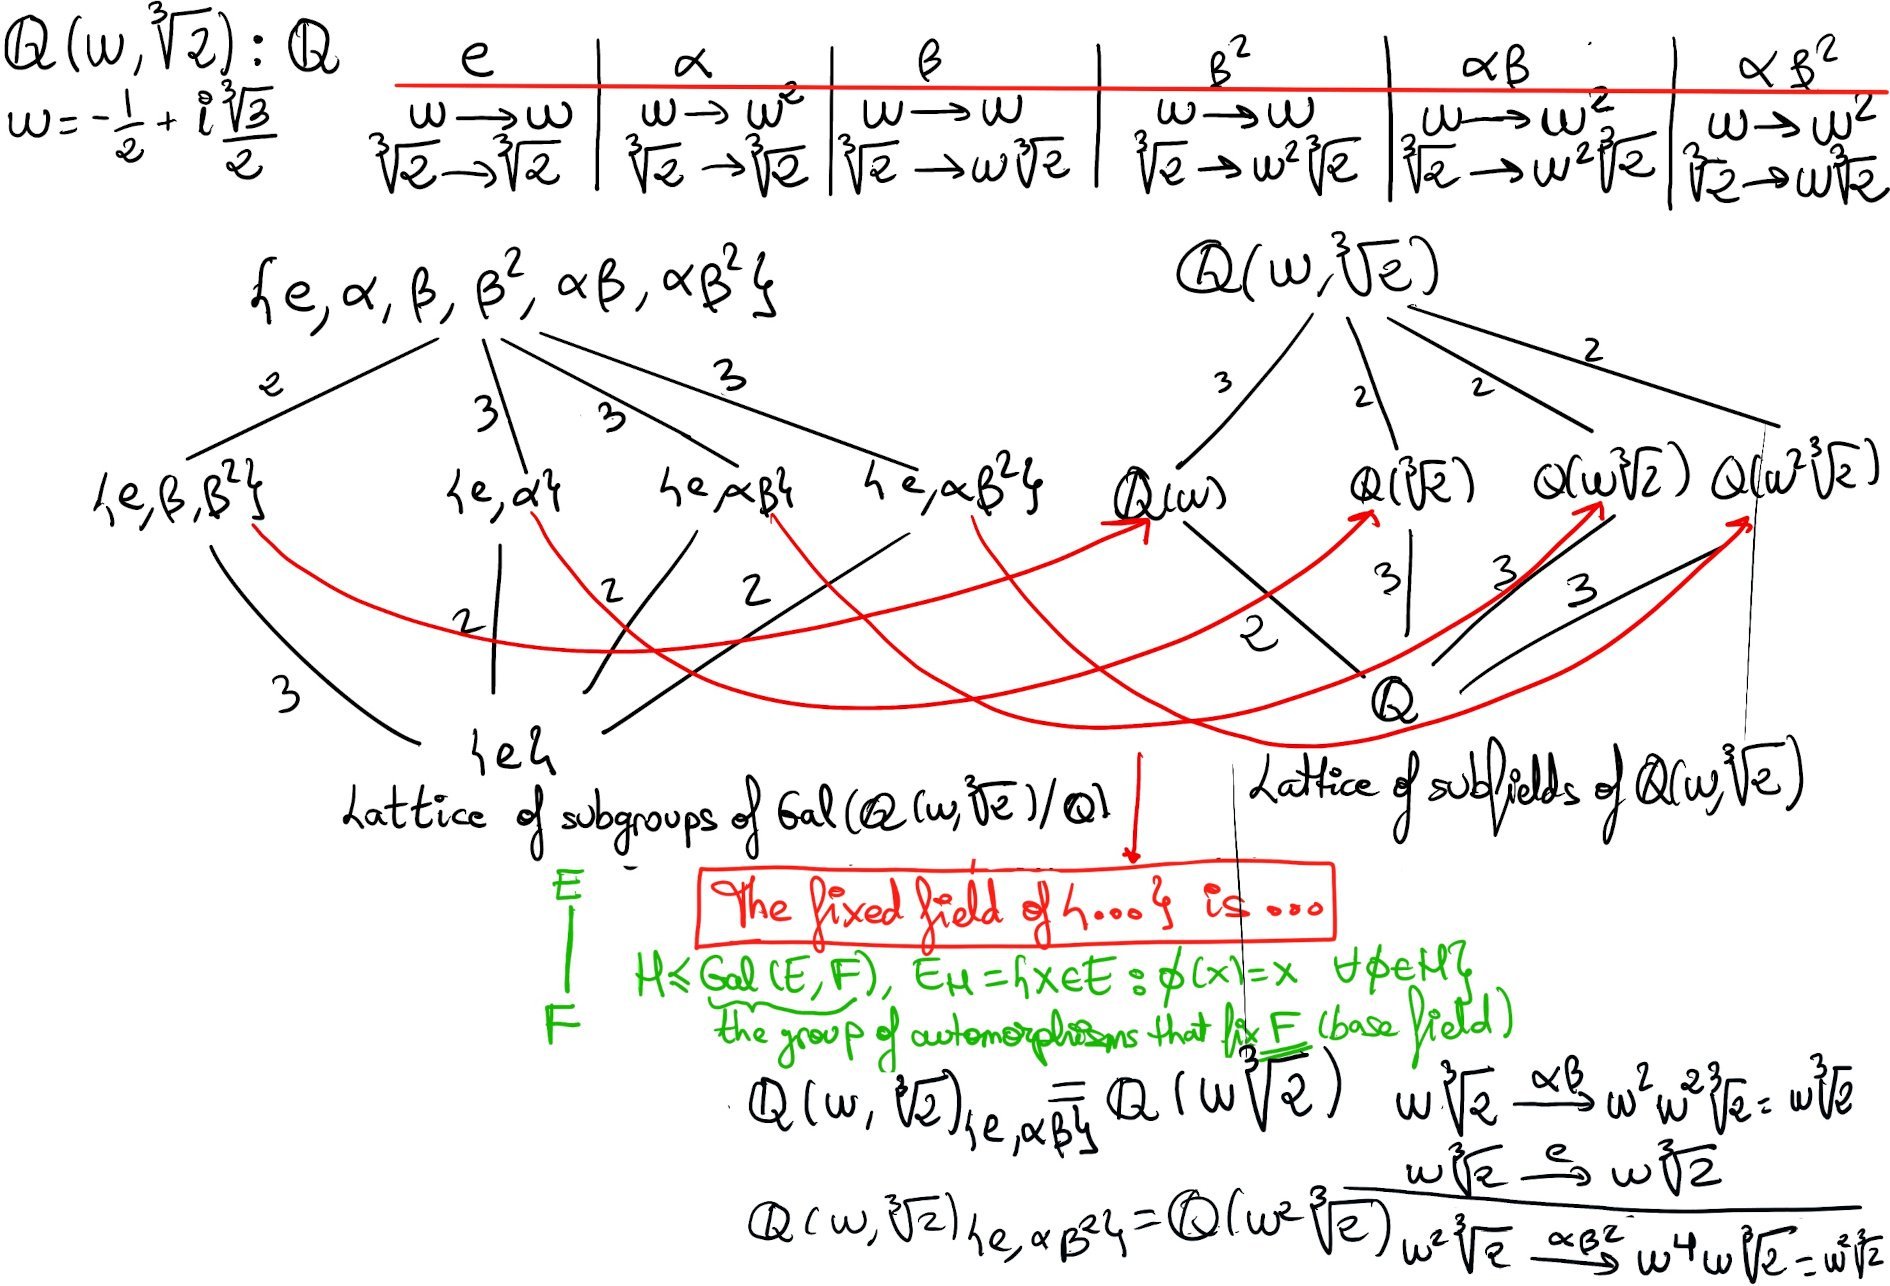 ℚ(ω, ∛2) : ℚ
ω = -1/2 + i ∛3/2
e | α | β | β² | αβ | αβ²
ω → ω | ω → ω² | ω → ω | ω → ω | ω → ω² | ω → ω²
∛2 → ∛2 | ∛2 → ∛2 | ∛2 → ω∛2 | ∛2 → ω²∛2 | ∛2 → ω²∛2 | ∛2 → ω∛2
{e, α, β, β², αβ, αβ²}
2 3 3 3
{e, β, β²} {e, α} {e, αβ} {e, αβ²}
3 2 2 2
{e}
Lattice of subgroups of Gal(ℚ(ω, ∛2)/ℚ)
ℚ(ω, ∛2)
3 2 2 2
ℚ(ω) ℚ(∛2) ℚ(ω∛2) ℚ(ω²∛2)
2 3 3 3
ℚ
Lattice of subfields of ℚ(ω, ∛2)
The fixed field of {...} is ...
E
F
H ≤ Gal(E, F), E_H = {x ∈ E : ϕ(x) = x ∀ϕ ∈ H}
the group of automorphisms that fix F (base field)
ℚ(ω, ∛2)_{e, αβ} = ℚ(ω∛2)
ω∛2 αβ→ ω² ω² ∛2 = ω∛2
ω∛2 e→ ω∛2
ℚ(ω, ∛2)_{e, αβ²} = ℚ(ω²∛2)
ω²∛2 αβ²→ ω⁴ ω∛2 = ω²∛2